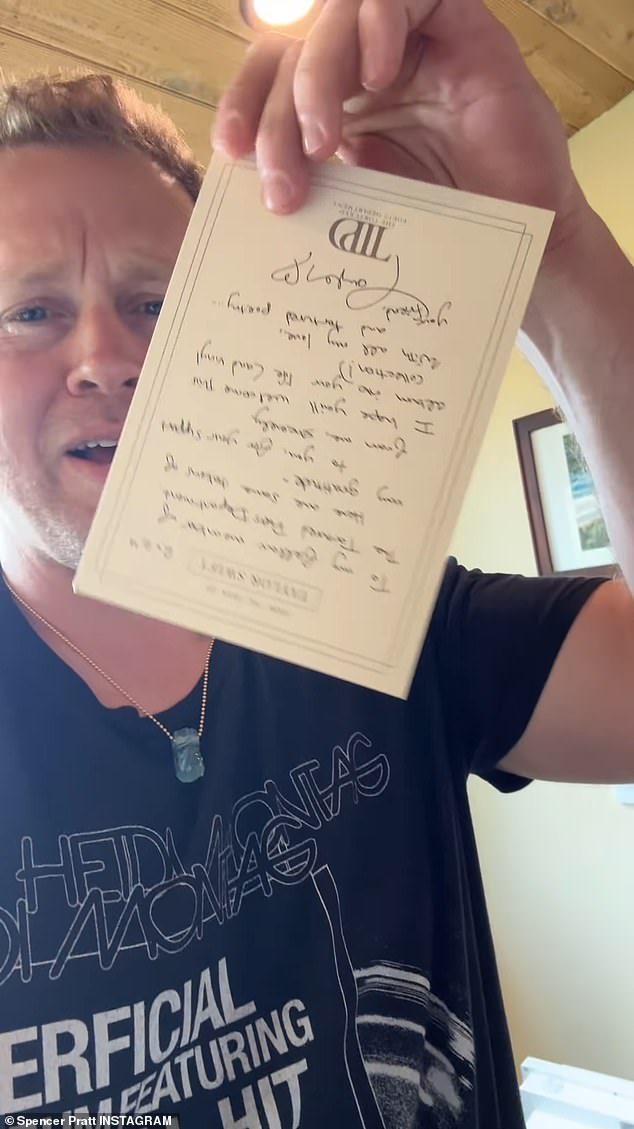 TAYLOR SWIFT
To my fellow member of
The Tortured Poets Department
Here are some tokens of
my gratitude -
to you for your support
from me sincerely
I hope you'll welcome this
album in your life (and vinyl
collection!)
With all my love...
and tortured poetry...
your friend
Taylor
TTPD
THE TORTURED
POETS DEPARTMENT
HEIDI MONTAG
DI MONTAG
ERFICIAL
M FEATURING
HIT
© Spencer Pratt INSTAGRAM